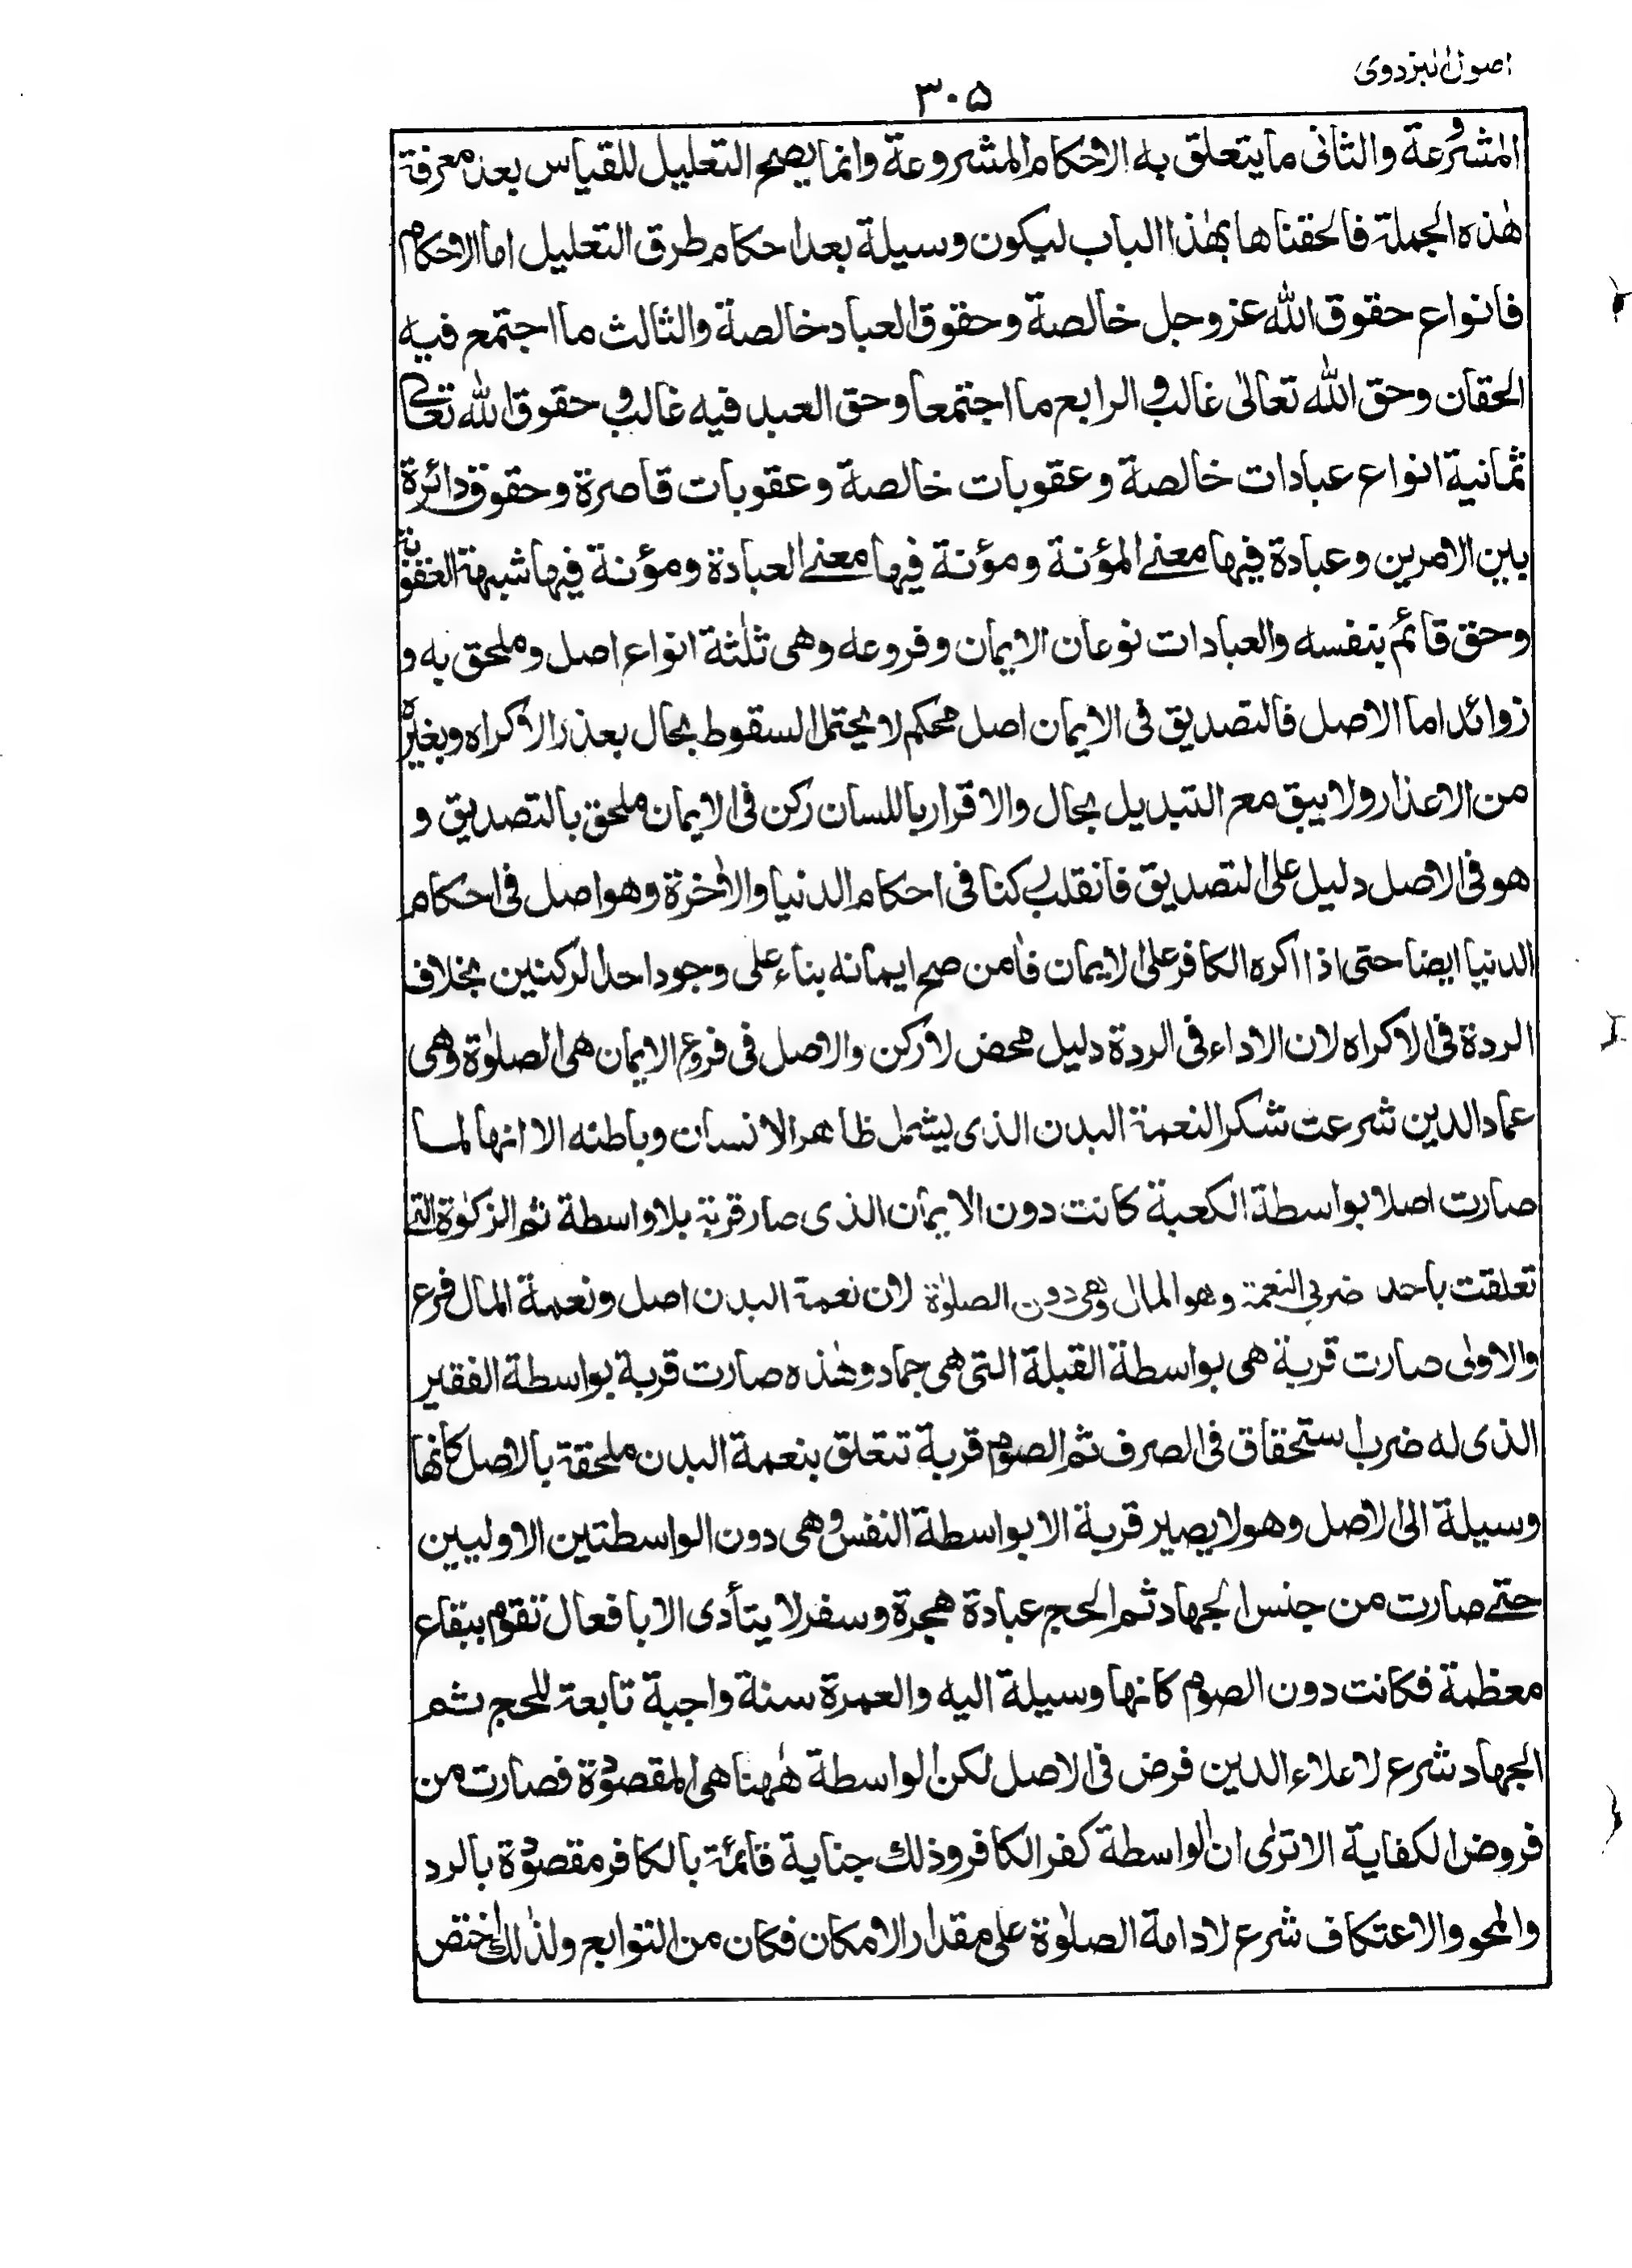 اصول البزدوی
۳۰۵
المشروعة والثانى ما يتعلق به الاحكام المشروعة وانما يصح التعليل للقياس بعد معرفة
هٰذه الجملة فالحقناها بهٰذا الباب ليكون وسيلة بعد احكام طرق التعليل اما الاحكام
فانواع حقوق الله عز وجل خالصة وحقوق العباد خالصة والثالث ما اجتمع فيه
الحقان وحق الله تعالىٰ غالب والرابع ما اجتمعا وحق العبد فيه غالب وحقوق الله تعالى
ثمانية انواع عبادات خالصة وعقوبات خالصة وعقوبات قاصرة وحقوق دائرة
بين الامرين وعبادة فيها معنى المؤنة ومؤنة فيها معنى العبادة ومؤنة فيها شبهة العقوبة
وحق قائم بنفسه والعبادات نوعان الايمان وفروعه وهى ثلٰثة انواع اصل وملحق به و
زوائد اما الاصل فالتصديق فى الايمان اصل محكم لا يحتمل السقوط بحال بعذر الاكراه وبغيره
من الاعذار ولا يبق مع التبديل بحال والاقرار باللسان ركن فى الايمان ملحق بالتصديق و
هو فى الاصل دليل على التصديق فانقلب ركنا فى احكام الدنيا والاٰخرة وهو اصل فى احكام
الدنيا ايضا حتى اذا اكره الكافر على الايمان فاٰمن صح ايمانه بناء على وجود احد الركنين بخلاف
الردة فى الاكراه لان الاداء فى الردة دليل محض لا ركن والاصل فى فروع الايمان هى الصلوٰة وهى
عماد الدين شرعت شكر النعمة البدن الذى يشمل ظاهر الانسان وباطنه الا انها لما
صارت اصلا بواسطة الكعبة كانت دون الايمان الذى صار قربة بلا واسطة ثم الزكوٰة التى
تعلقت باحد ضربى النعمة وهو المال وهى دون الصلوٰة لان نعمة البدن اصل ونعمة المال فرع
والاولىٰ صارت قربة هى بواسطة القبلة التى هى جماد وهٰذه صارت قربة بواسطة الفقير
الذى له ضرب استحقاق فى الصرف ثم الصوم قربة تتعلق بنعمة البدن ملحقة بالاصل كانها
وسيلة الى الاصل وهو لا يصير قربة الا بواسطة النفس وهى دون الواسطتين الاوليين
حتى صارت من جنس الجهاد ثم الحج عبادة هجرة وسفر لا يتأدى الا بافعال تقوم ببقاع
معظمة فكانت دون الصوم كانها وسيلة اليه والعمرة سنة واجبة تابعة للحج ثم
الجهاد شرع لاعلاء الدين فرض فى الاصل لكن الواسطة هٰهنا هى المقصودة فصارت من
فروض الكفاية الا ترىٰ ان الواسطة كفر الكافر وذلك جناية قائمة بالكافر مقصودة بالرد
والمحو والاعتكاف شرع لادامة الصلوٰة على مقدار الامكان فكان من التوابع ولذٰلك اختص